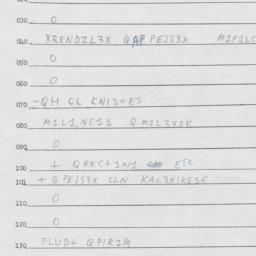 020
030 0
040 XRENDZL3X QAP PEJS3X M2F1LC
050 0
060 0
070 -QH GL KNIS+ES
080 M1L1,NC1S QM1L3X1K
090 0
+ QREC+1N1 ETC
100 + QPEJS3X CLN KAL3X1KE3R
101
110 0
120 0
130 FLUD+ QPIR1M